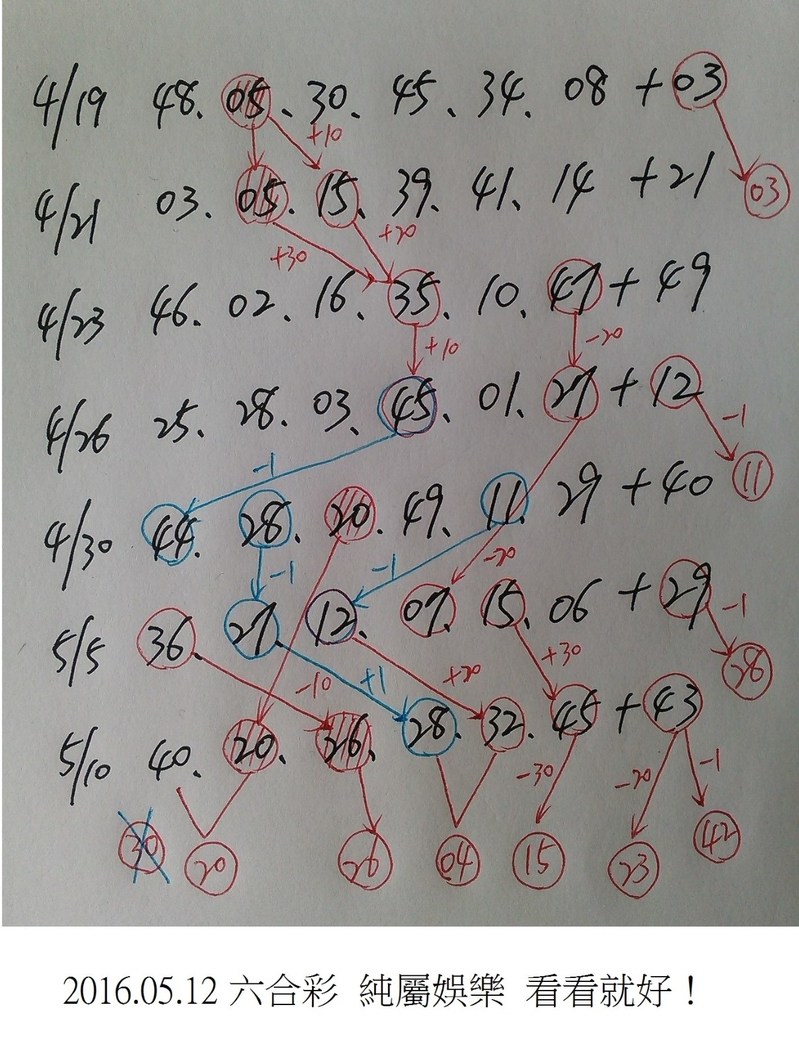 4/19 48. 05. 30. 45. 34. 08 + 03
+10
4/21 03. 05. 15. 39. 41. 14 + 21 03
+30 +20
4/23 46. 02. 16. 35. 10. 47 + 49
+10 -20
4/26 25. 28. 03. 45. 01. 27 + 12
-1 -1
11
4/30 44. 28. 20. 49. 11. 29 + 40
-1 -1 -20
5/5 36. 27. 12. 07. 15. 06 + 29
-1
28
-10 +1 +20 +30
5/10 40. 20. 26. 28. 32. 45 + 43
-30 -20 -1
30 20 26 04 15 23 42
2016.05.12 六合彩 純屬娛樂 看看就好！